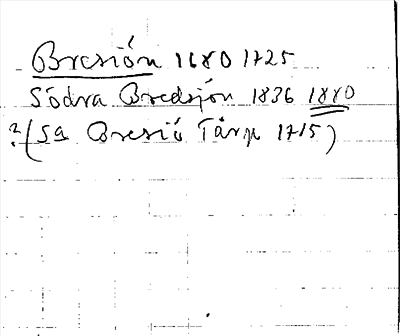 Bresiön 1680 1725
Södra Bredsjön 1836 1880
?(Sa Bresiö Tårp 1715)